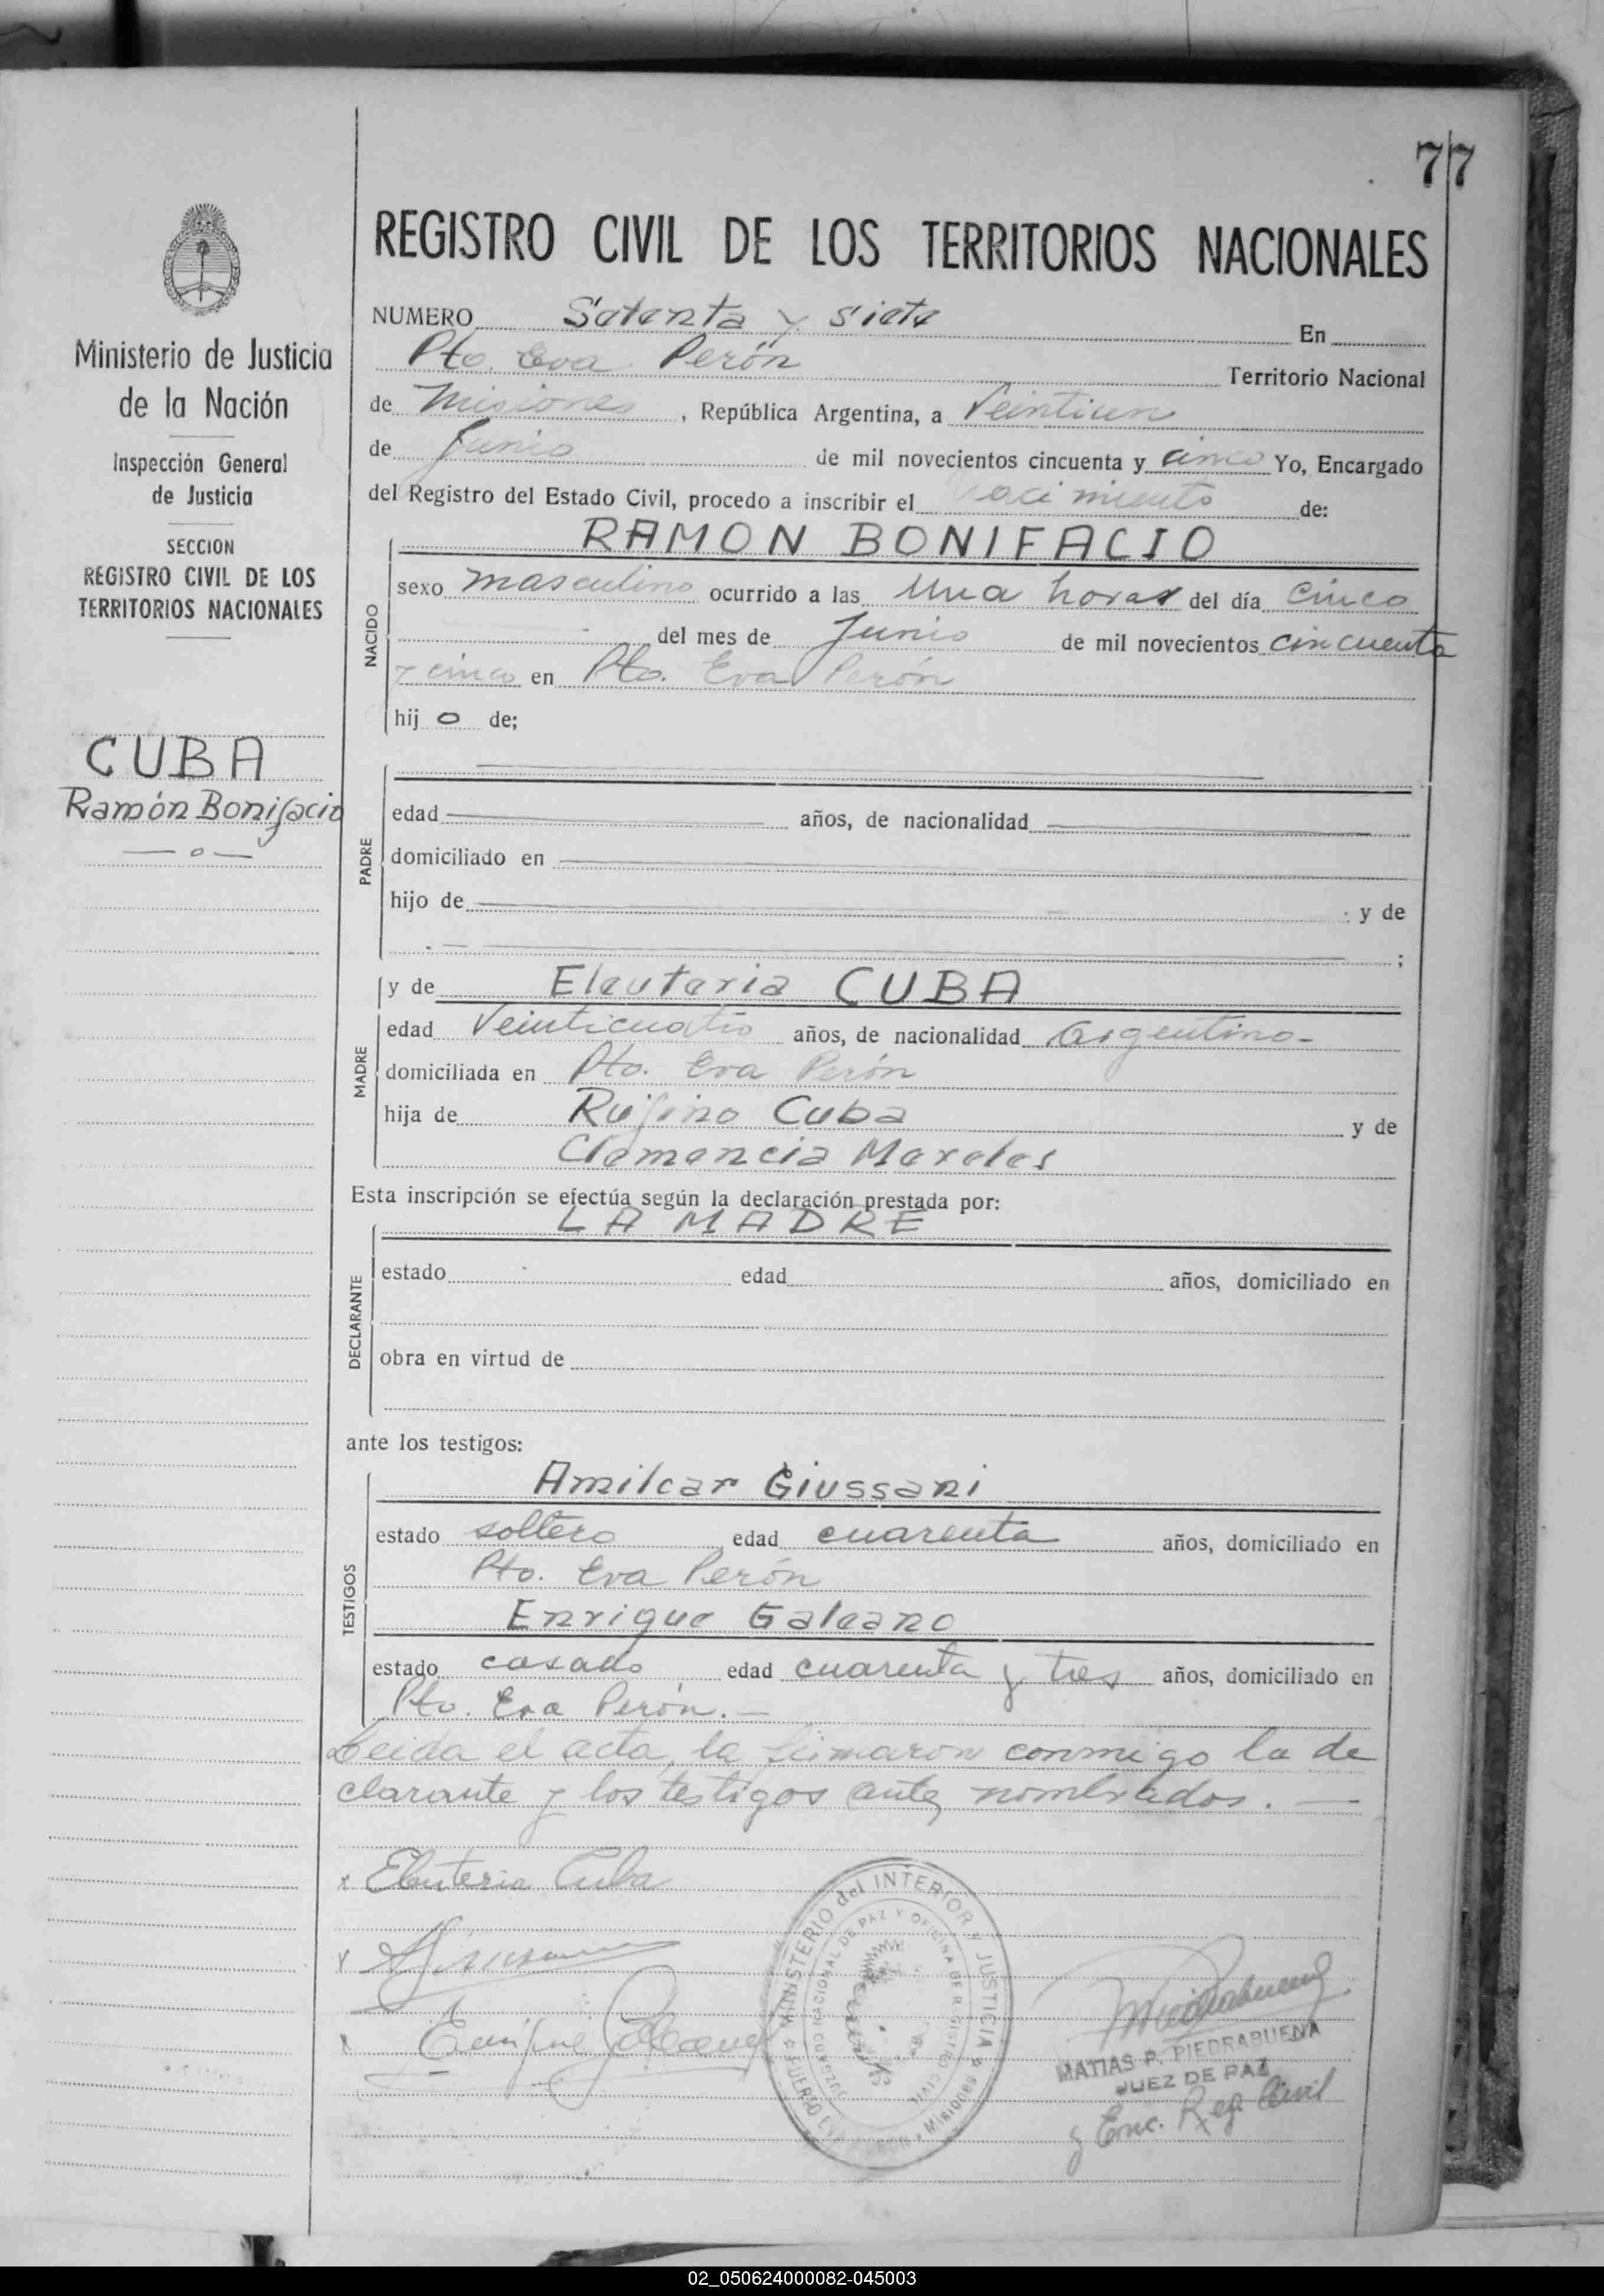 77
REGISTRO CIVIL DE LOS TERRITORIOS NACIONALES
Ministerio de Justicia
de la Nación
Inspección General
de Justicia
SECCION
REGISTRO CIVIL DE LOS
TERRITORIOS NACIONALES
CUBA
Ramón Bonifacio
NUMERO Setenta y siete En
Pto. Eva Perón Territorio Nacional
de Misiones, República Argentina, a Veintiun
de Junio de mil novecientos cincuenta y cinco Yo, Encargado
del Registro del Estado Civil, procedo a inscribir el nacimiento de:
RAMON BONIFACIO
NACIDO
sexo masculino ocurrido a las una horas del día cinco
del mes de Junio de mil novecientos cincuenta
y cinco en Pto. Eva Perón
hijo de;
PADRE
edad años, de nacionalidad
domiciliado en
hijo de y de
;
MADRE
y de Eleuteria CUBA
edad Veinticuatro años, de nacionalidad Argentina-
domiciliada en Pto. Eva Perón
hija de Rufino Cuba y de
Clemencia Mereles
Esta inscripción se efectúa según la declaración prestada por:
LA MADRE
DECLARANTE
estado edad años, domiciliado en
obra en virtud de
ante los testigos:
TESTIGOS
Amilcar Giussani
estado soltero edad cuarenta años, domiciliado en
Pto. Eva Perón
Enrique Galeano
estado casado edad cuarenta y tres años, domiciliado en
Pto. Eva Perón.-
Leida el acta, la firmaron conmigo la de
clarante y los testigos antes nombrados. —
x Eleuteria Cuba
x
x Enrique Galeano
MINISTERIO del INTERIOR y JUSTICIA
JUZGADO NACIONAL DE PAZ Y OFICINA DE REGISTRO CIVIL
PUERTO EVA PERON - Misiones
MATIAS P. PIEDRABUENA
JUEZ DE PAZ
y Enc. Reg. Civil
02_050624000082-045003